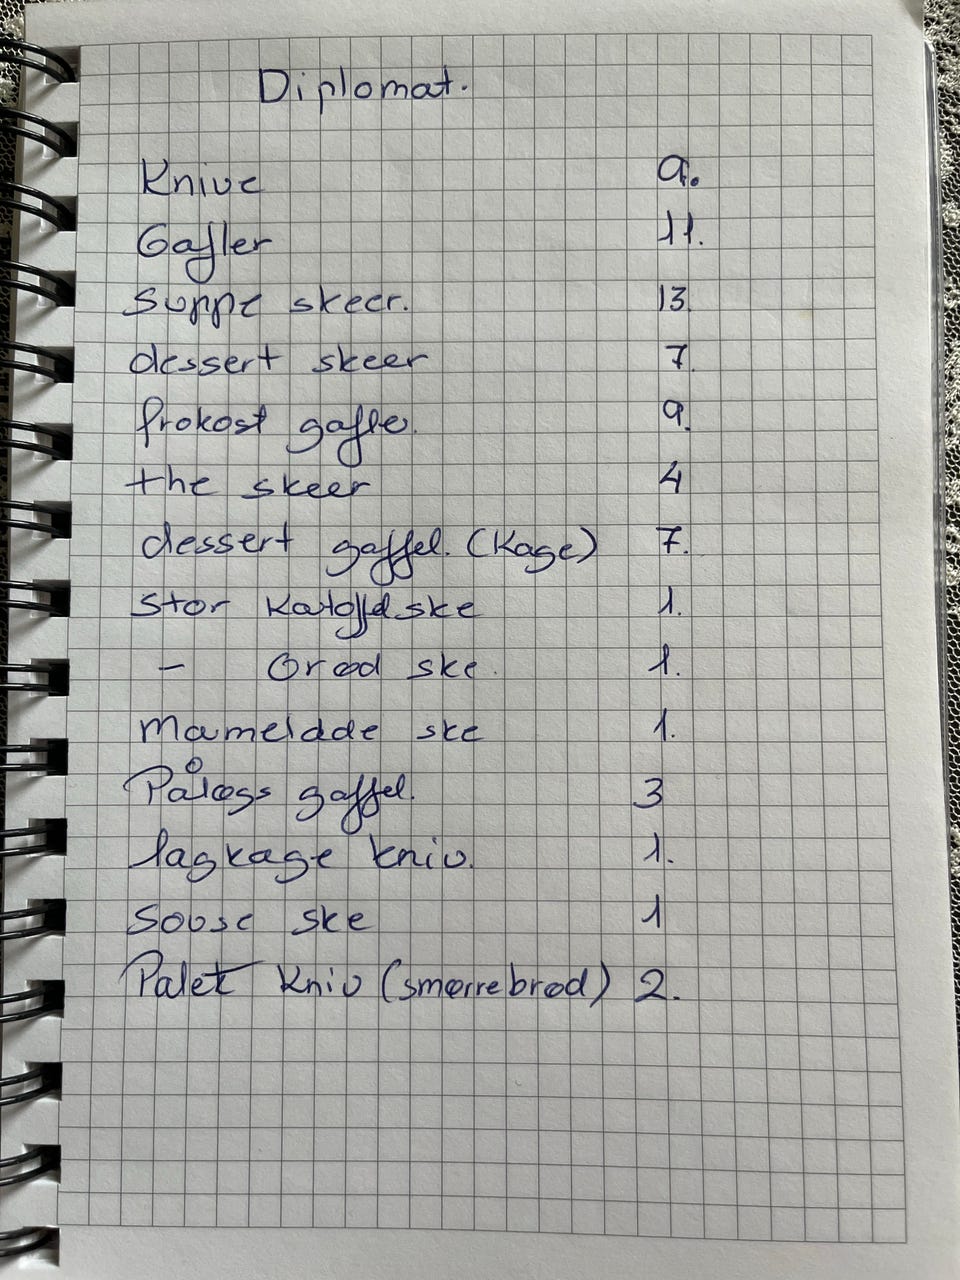 Diplomat.
Knive 9.
Gafler 11.
Suppe skeer. 13.
dessert skeer 7.
frokost gafle. 9.
the skeer 4
dessert gaffel. (Kage) 7.
Stor Kartoffelske 1.
- Grød ske. 1.
Mameladde ske 1.
Pålægs gaffel. 3
lagkage kniv. 1.
Sovse ske 1
Palet Kniv (smørrebrød) 2.